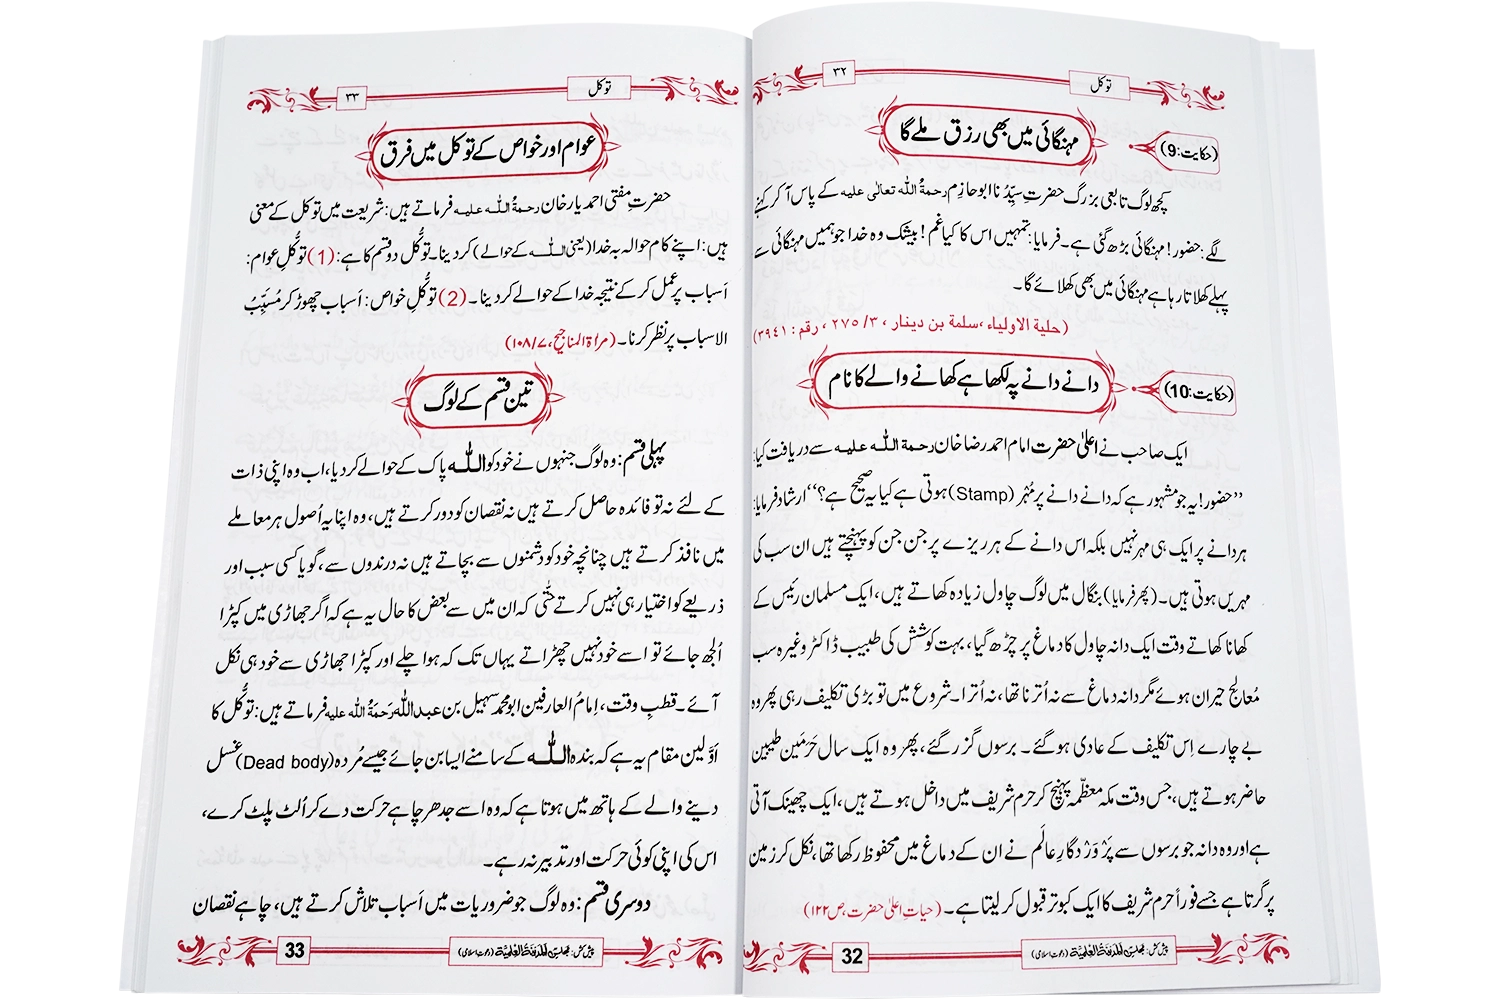 ۳۲
توکل
(حکایت:9)
مہنگائی میں بھی رزق ملے گا
کچھ لوگ تابعی بزرگ حضرتِ سیِّدُنا ابوحازِم رحمۃُ اللہ تعالٰی علیہ کے پاس آ کر کہنے
لگے: حضور! مہنگائی بڑھ گئی ہے۔ فرمایا: تمہیں اس کا کیا غم! بیشک وہ خدا جو ہمیں مہنگائی سے
پہلے کھلاتا رہا ہے مہنگائی میں بھی کھلائے گا۔
(حلیۃ الاولیاء، سلمۃ بن دینار، ۳/ ۲۷۵، رقم: ۳۹۴۱)
(حکایت:10)
دانے دانے پہ لکھا ہے کھانے والے کا نام
ایک صاحب نے اعلیٰ حضرت امام احمد رضا خان رحمۃ اللہ علیہ سے دریافت کیا:
’’حضور! یہ جو مشہور ہے کہ دانے دانے پر مُہْر (Stamp) ہوتی ہے کیا یہ صحیح ہے؟‘‘ ارشاد فرمایا:
ہر دانے پر ایک ہی مہر نہیں بلکہ اس دانے کے ہر ریزے پر جن جن کو پہنچتے ہیں ان سب کی
مہریں ہوتی ہیں۔ (پھر فرمایا) بنگال میں لوگ چاول زیادہ کھاتے ہیں، ایک مسلمان رئیس کے
کھانا کھاتے وقت ایک دانہ چاول کا دماغ پر چڑھ گیا، بہت کوشش کی طبیب ڈاکٹر وغیرہ سب
مُعالِج حیران ہوئے مگر دانہ دماغ سے نہ اُترنا تھا، نہ اُترا۔ شروع میں تو بڑی تکلیف رہی پھر وہ
بے چارے اِس تکلیف کے عادی ہو گئے۔ برسوں گزر گئے، پھر وہ ایک سال حَرَمَین طیبین
حاضر ہوتے ہیں، جس وقت مکہ معظّمہ پہنچ کر حرم شریف میں داخل ہوتے ہیں، ایک چھینک آتی
ہے اور وہ دانہ جو برسوں سے پَرْوَرْدگارِ عالَم نے ان کے دماغ میں محفوظ رکھا تھا، نکل کر زمین
پر گرتا ہے جسے فوراً حرم شریف کا ایک کبوتر قبول کر لیتا ہے۔ (حیاتِ اعلیٰ حضرت، ص۱۲۲)
32
پیش کش: مجلس المدینۃ العلمیۃ (دعوتِ اسلامی)
۳۳
توکل
عوام اور خواص کے توکل میں فرق
حضرتِ مفتی احمد یار خان رحمۃُ اللہ علیہ فرماتے ہیں: شریعت میں توکل کے معنی
ہیں: اپنے کام حوالہ بہ خدا (یعنی اللہ کے حوالے) کر دینا۔ توکُّل دو قسم کا ہے: (1) توکُّلِ عوام:
اَسباب پر عمل کر کے نتیجہ خدا کے حوالے کر دینا۔ (2) توکُّلِ خواص: اَسباب چھوڑ کر مُسَبِّبُ
الاسباب پر نظر کرنا۔ (مراۃ المناجیح، ۱۰۸/۷)
تین قسم کے لوگ
پہلی قسم: وہ لوگ جنہوں نے خود کو اللہ پاک کے حوالے کر دیا، اب وہ اپنی ذات
کے لئے نہ تو فائدہ حاصل کرتے ہیں نہ نقصان کو دور کرتے ہیں، وہ اپنا یہ اُصول ہر معاملے
میں نافذ کرتے ہیں چنانچہ خود کو دشمنوں سے بچاتے ہیں نہ درندوں سے، گویا کسی سبب اور
ذریعے کو اختیار ہی نہیں کرتے حتّٰی کہ ان میں سے بعض کا حال یہ ہے کہ اگر جھاڑی میں کپڑا
اُلجھ جائے تو اسے خود نہیں چھڑاتے یہاں تک کہ ہوا چلے اور کپڑا جھاڑی سے خود ہی نکل
آئے۔ قطبِ وقت، اِمامُ العارفین ابو محمد سہیل بن عبداللہ رَحمۃُ اللہ علیہ فرماتے ہیں: توکُّل کا
اَوّلین مقام یہ ہے کہ بندہ اللہ کے سامنے ایسا بن جائے جیسے مُردہ (Dead body) غسل
دینے والے کے ہاتھ میں ہوتا ہے کہ وہ اسے جدھر چاہے حرکت دے کر اُلٹ پلٹ کرے،
اس کی اپنی کوئی حرکت اور تدبیر نہ رہے۔
دوسری قسم: وہ لوگ جو ضروریات میں اَسباب تلاش کرتے ہیں، چاہے نقصان
33
پیش کش: مجلس المدینۃ العلمیۃ (دعوتِ اسلامی)